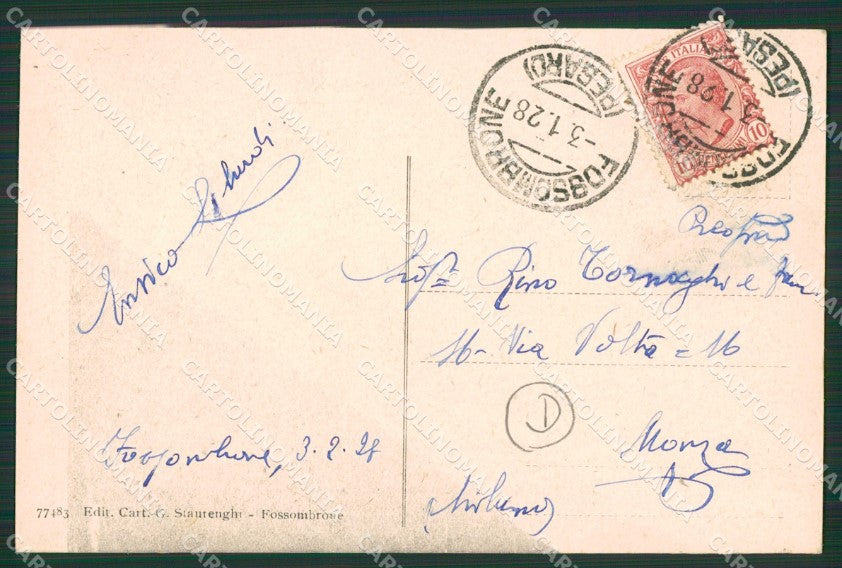 FOSSOMBRONE
(PESARO)
-3.1.28
FOSSOMBRONE
(PESARO)
3.1.28
ITALIA
10
Enrico
Rino Tornaghi e
16 - Via Volta = 16
Monza
(Milano)
D
Fossombrone, 3.2.28
77483 Edit. Cart. G. Staurenghi - Fossombrone
CARTOLINOMANIA